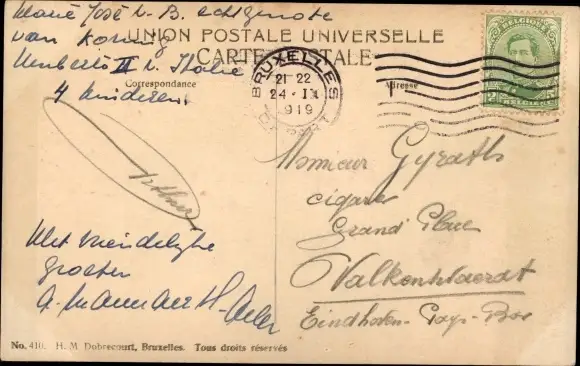 Marie José v. B. echtgenote
van koning
Umberto II v. Italie
4 kinderen
UNION POSTALE UNIVERSELLE
CARTE POSTALE
Correspondance
Adresse
BRUXELLES
21-22
24-IX
1919
DEPART
BELGIQUE
5 5
BELGIE
Monsieur Gyraths
cigares
Grand Place
Valkenswaerdt
Eindhoven - Pays-Bas
Met vriendelijke
groeten
No. 410. H. M. Dobrecourt, Bruxelles. Tous droits réservés